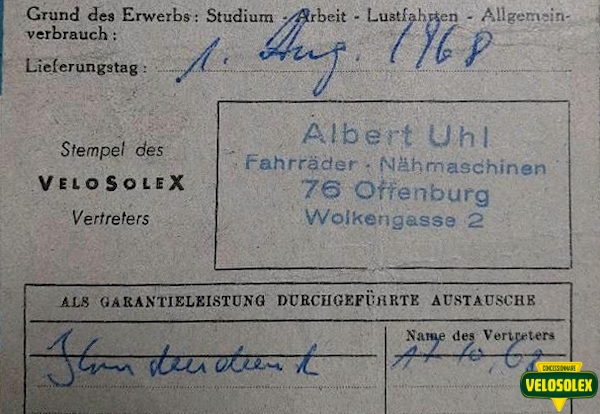 Grund des Erwerbs: Studium - Arbeit - Lustfahrten - Allgemein-
verbrauch:
Lieferungstag: 1. Aug. 1968
Stempel des
VELOSOLEX
Vertreters
Albert Uhl
Fahrräder - Nähmaschinen
76 Offenburg
Wolkengasse 2
ALS GARANTIELEISTUNG DURCHGEFÜHRTE AUSTAUSCHE
Name des Vertreters
Kundendienst 17.10.68
CONCESSIONNAIRE
VELOSOLEX